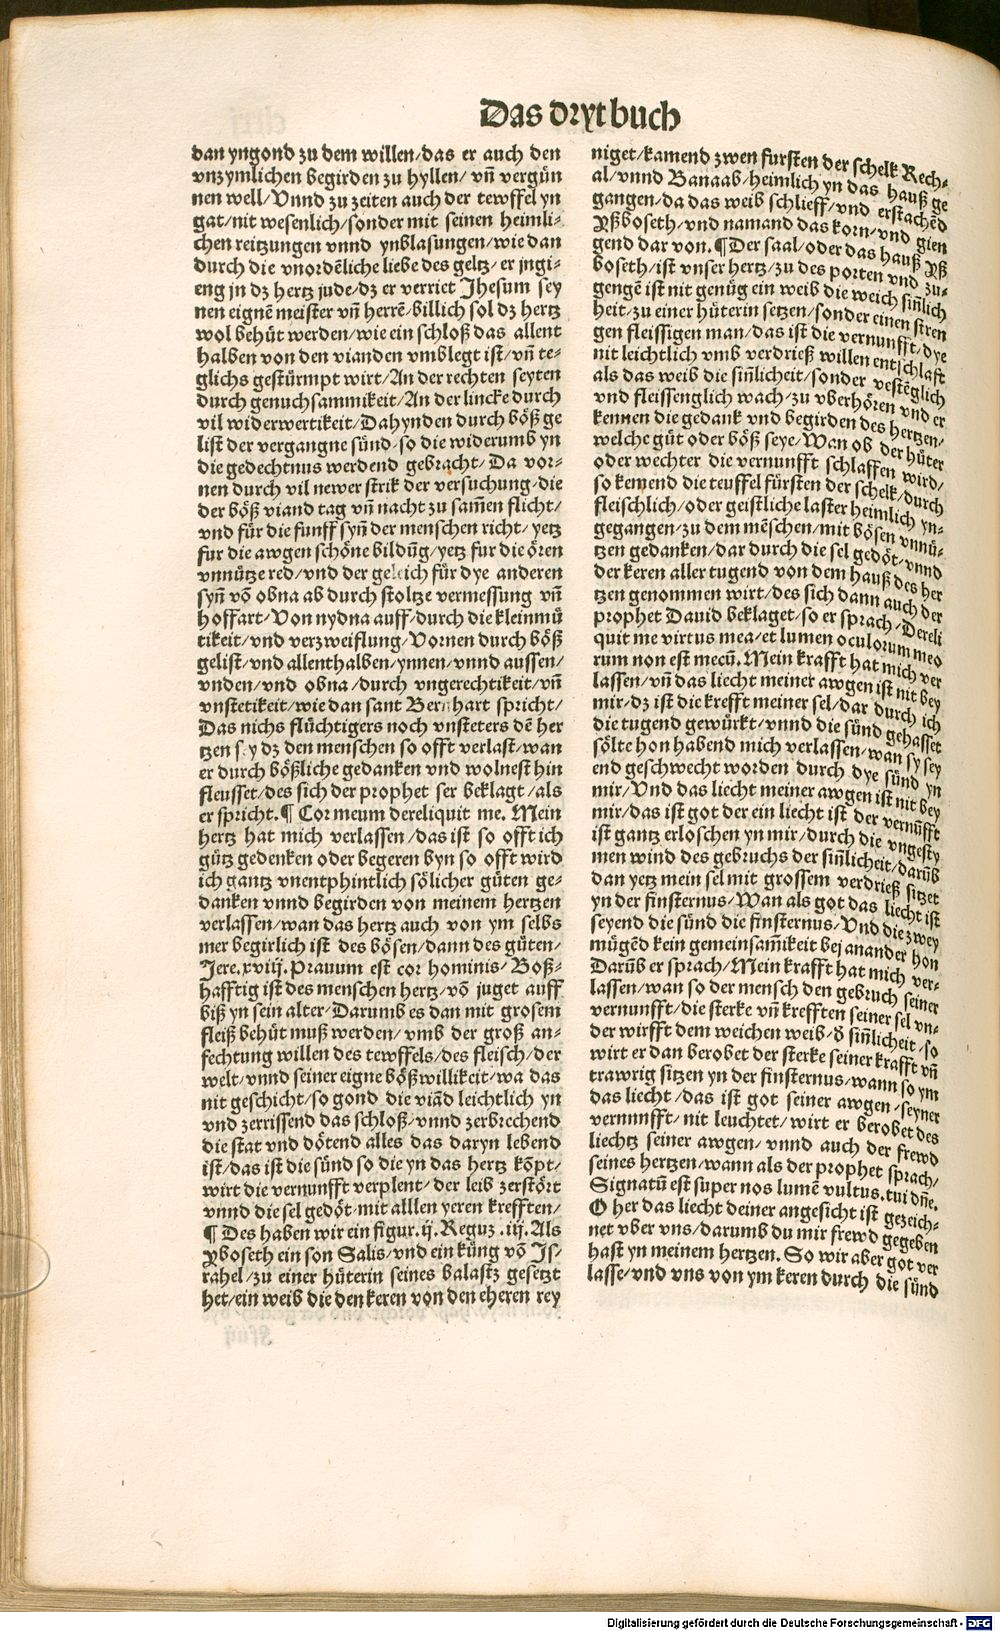 Das dryt buch
dan yngond zu dem willen/das er auch den
vnzymlichen begirden zu hyllen/ vñ vergün
nen well/Vnnd zu zeiten auch der tewffel yn
gat/nit wesenlich/sonder mit seinen heimli-
chen reitzungen vnnd ynblasungen/wie dan
durch die vnordēliche liebe des geltz/er jngi-
eng jn dz hertz jude/dz er verriet Jhesum sey
nen eignē meister vñ herrē/billich sol dz hertz
wol behüt werden/wie ein schloß das allent
halben von den vianden vmblegt ist/vñ te-
glichs gestürmpt wirt/An der rechten seyten
durch genuchsammikeit/An der lincke durch
vil widerwertikeit/Dahynden durch böß ge
list der vergangne sünd/so die widerumb yn
die gedechtnus werdend gebracht/Da vor-
nen durch vil newer strik der versuchung/die
der böß viand tag vñ nacht zu sam̃en flicht/
vnd für die funff syñ der menschen richt/yetz
fur die awgen schöne bildūg/yetz fur die ören
vnnütze red/vnd der geleich für dye anderen
syñ võ obna ab durch stoltze vermessung vñ
hoffart/Von nydna auff/durch die kleinmü
tikeit/vnd verzweiflung/Vornen durch böß
gelist/vnd allenthalben/ynnen/vnnd aussen/
vnden/vnd obna/durch vngerechtikeit/vñ
vnstetikeit/wie dan sant Bernhart spricht/
Das nichs flüchtigers noch vnsteters dē her
tzen sey dz den menschen so offt verlast/wan
er durch bößliche gedanken vnd wolnest hin
fleusset/des sich der prophet ser beklagt/als
er spricht.¶ Cor meum dereliquit me. Mein
hertz hat mich verlassen/das ist so offt ich
gütz gedenken oder begeren byn so offt wird
ich gantz vnentphintlich sölicher güten ge-
danken vnnd begirden von meinem hertzen
verlassen/wan das hertz auch von ym selbs
mer begirlich ist des bösen/dann des güten/
Jere.xviij.Prauum est cor hominis/Boß-
hafftig ist des menschen hertz/võ juget auff
biß yn sein alter/Darumb es dan mit grosem
fleiß behüt muß werden/vmb der groß an-
fechtung willen des tewffels/des fleisch/der
welt/vnnd seiner eigne böß willikeit/wa das
nit geschicht/so gond die viād leichtlich yn
vnd zerrissend das schloß/vnnd zerbrechend
die stat vnd dötend alles das daryn lebend
ist/das ist die sünd so die yn das hertz kōpt/
wirt die vernunfft verplent/der leib zerstört
vnnd die sel gedöt/mit alllen yeren krefften/
¶ Des haben wir ein figur.ij.Reguz.iij.Als
Yboseth ein son Salis/vnd ein küng võ Js/
rahel/zu einer hüterin seines balastz gesetzt
het/ein weib die den keren von den eheren rey
niget/kamend zwen fursten der schelk Rech-
al/vnnd Banaab/heimlich yn das hauß ge
gangen/da das weib schlieff/vnd erstachēd
Yßboseth/vnd namand das korn/vnd gien
gend dar von.¶Der saal/oder das hauß Yß
boseth/ist vnser hertz/zu des porten vnd zu-
gengē ist nit genüg ein weib die weich siñlich
heit/zu einer hüterin setzen/sonder einen stren
gen fleissigen man/das ist die vernunfft/dye
nit leichtlich vmb verdrieß willen entschlaft
als das weib die siñlicheit/sonder vestēglich
vnd fleissenglich wach/zu vberhören vnd er
kennen die gedank vnd begirden des hertzen/
welche güt oder böß seye/Wan ob der hüter
oder wechter die vernunfft schlaffen wird/
so kemend die teuffel fürsten der schelk/durch
fleischlich/oder geistliche laster heimlich yn-
gegangen/zu dem mēschen/mit bösen vnnü-
tzen gedanken/dar durch die sel gedöt/vnnd
der keren aller tugend von dem hauß des her
tzen genommen wirt/des sich dann auch der
prophet Dauid beklaget/so er sprach/Dereli
quit me virtus mea/et lumen oculorum meo
rum non est mecū.Mein krafft hat mich ver
lassen/vñ das liecht meiner awgen ist nit bey
mir/dz ist die krefft meiner sel/dar durch ich
die tugend gewürkt/vnnd die sünd gehasset
sölte hon habend mich verlassen/wan sy sey
end geschwecht worden durch dye sünd yn
mir/Vnd das liecht meiner awgen ist nit bey
mir/das ist got der ein liecht ist der vernūfft
ist gantz erloschen yn mir/durch die vngesty
men wind des gebruchs der siñlicheit/darūb
dan yetz mein sel mit grossem verdrieß sitzet
yn der finsternus/Wan als got das liecht ist
seyend die sünd die finsternus/Vnd die zwey
mügēd kein gemeinsam̃ikeit bej anander hon
Darūb er sprach/Mein krafft hat mich ver-
lassen/wan so der mensch den gebruch seiner
vernunfft/die sterke vñ krefften seiner sel vn-
der wirfft dem weichen weib/ð siñlicheit/so
wirt er dan berobet der sterke seiner krafft vñ
trawrig sitzen yn der finsternus/wann so ym
das liecht/das ist got seiner awgen/seyner
vernunfft/nit leuchtet/wirt er berobet des
liechtz seiner awgen/vnnd auch der frewd
seines hertzen/wann als der prophet sprach/
Signatū est super nos lumē vultus.tui dñe.
O her das liecht deiner angesicht ist gezeich-
net vber vns/darumb du mir frewd gegeben
hast yn meinem hertzen. So wir aber got ver
lasse/vnd vns von ym keren durch die sünd
Digitalisierung gefördert durch die Deutsche Forschungsgemeinschaft - DFG